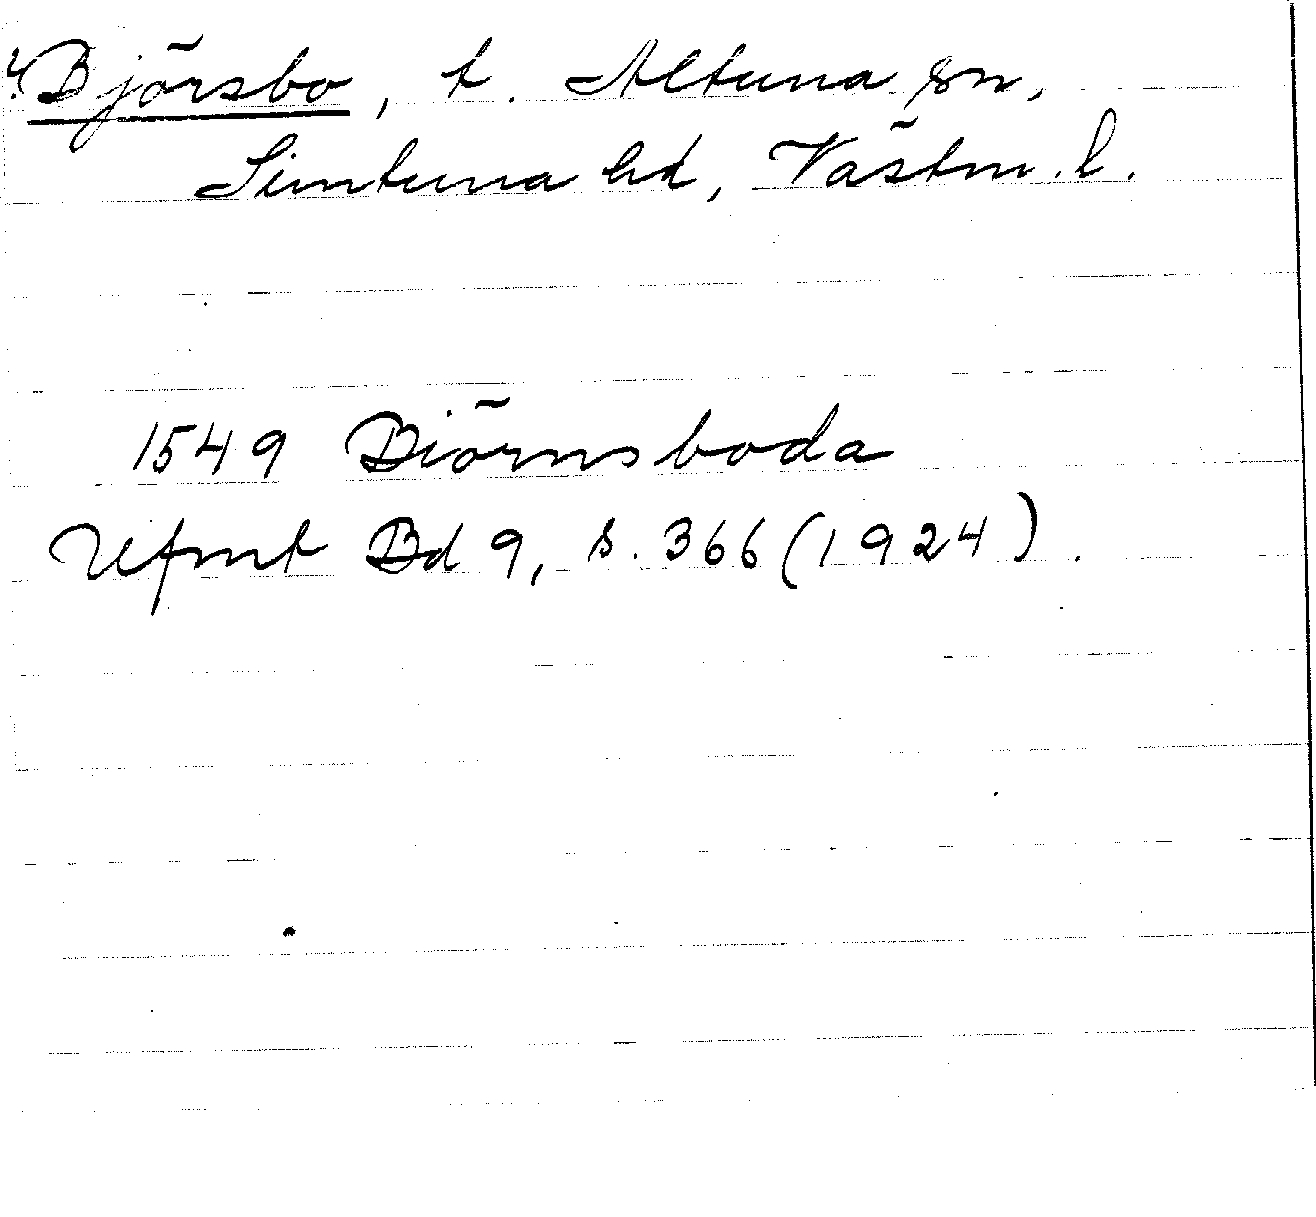 Björsbo, t. Altuna sn,
Simtuna hd, Västm. l.
1549 Biörnsboda
Ufmt Bd 9, s. 366 (1924).